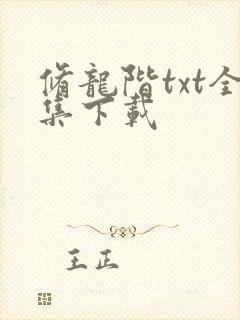 脩龍階txt全
集下載
王正